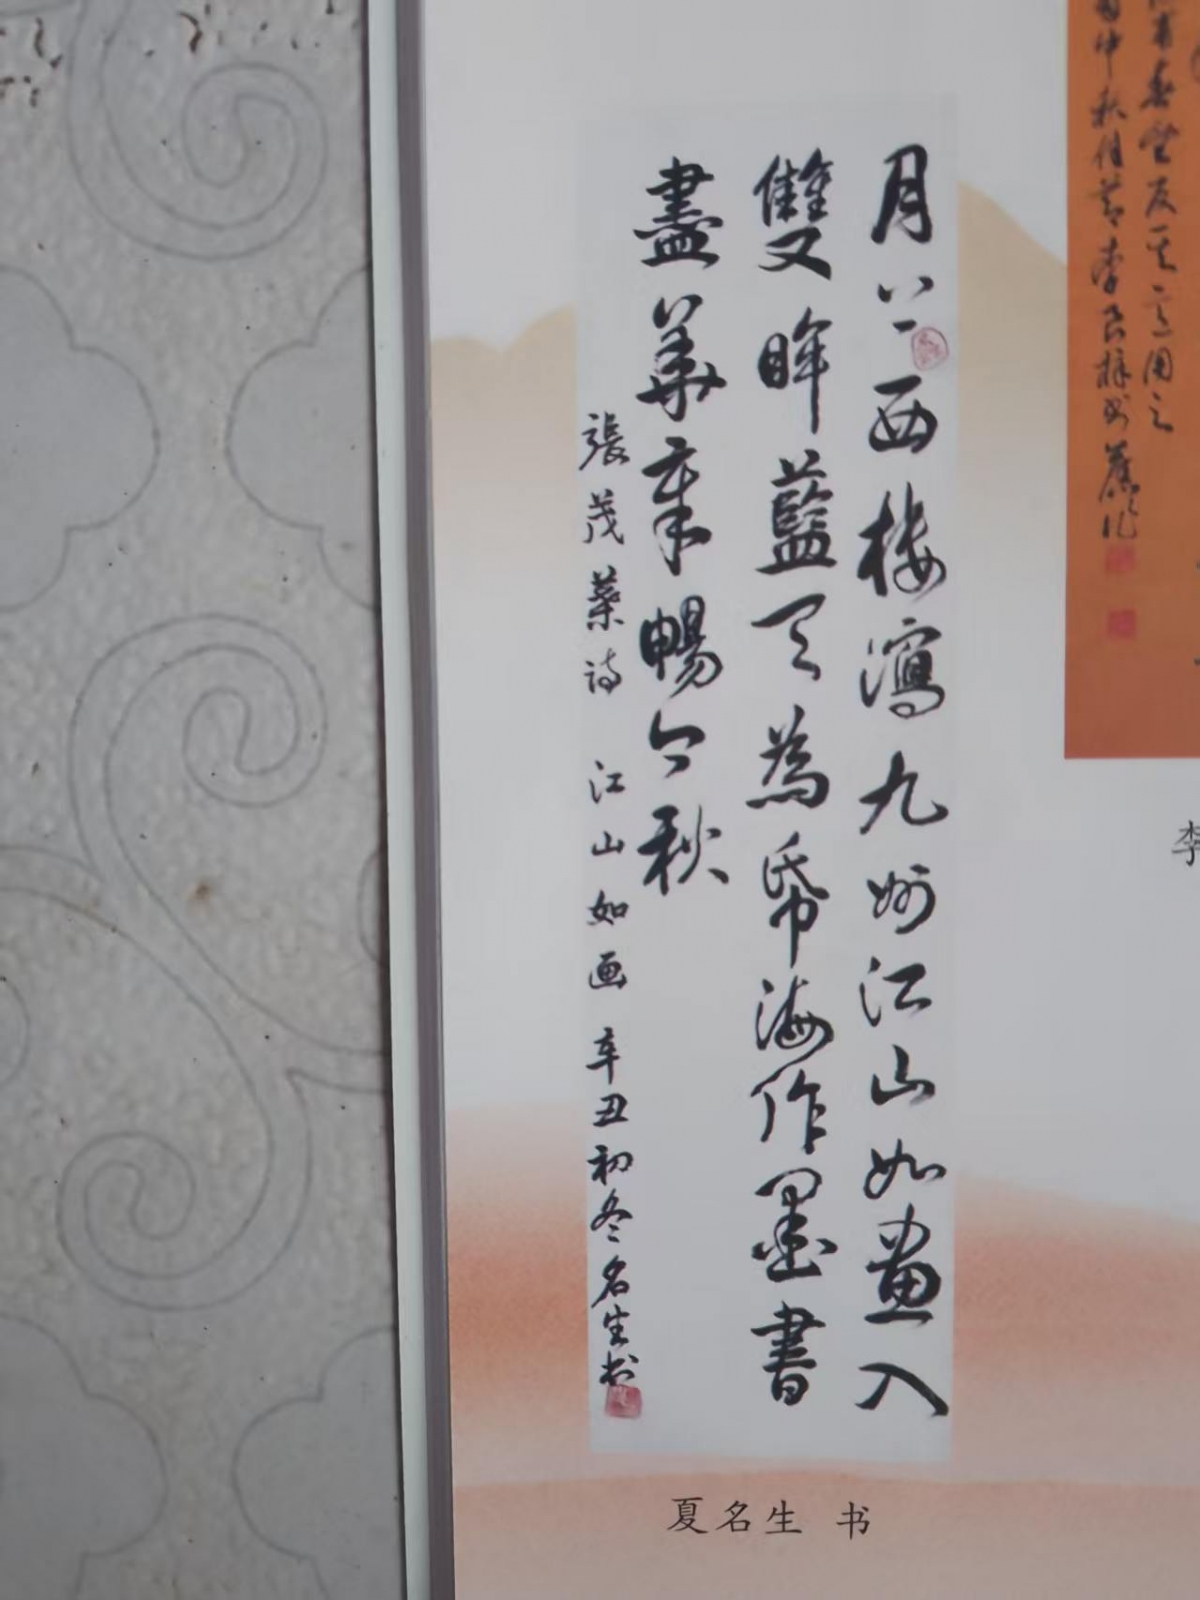 月上西楼瀉九州江山如畫入
雙眸藍天為帋海作墨書
盡華章暢今秋
張茂葉詩 江山如画 辛丑初冬名生书
夏名生 书
中秋佳节李
李